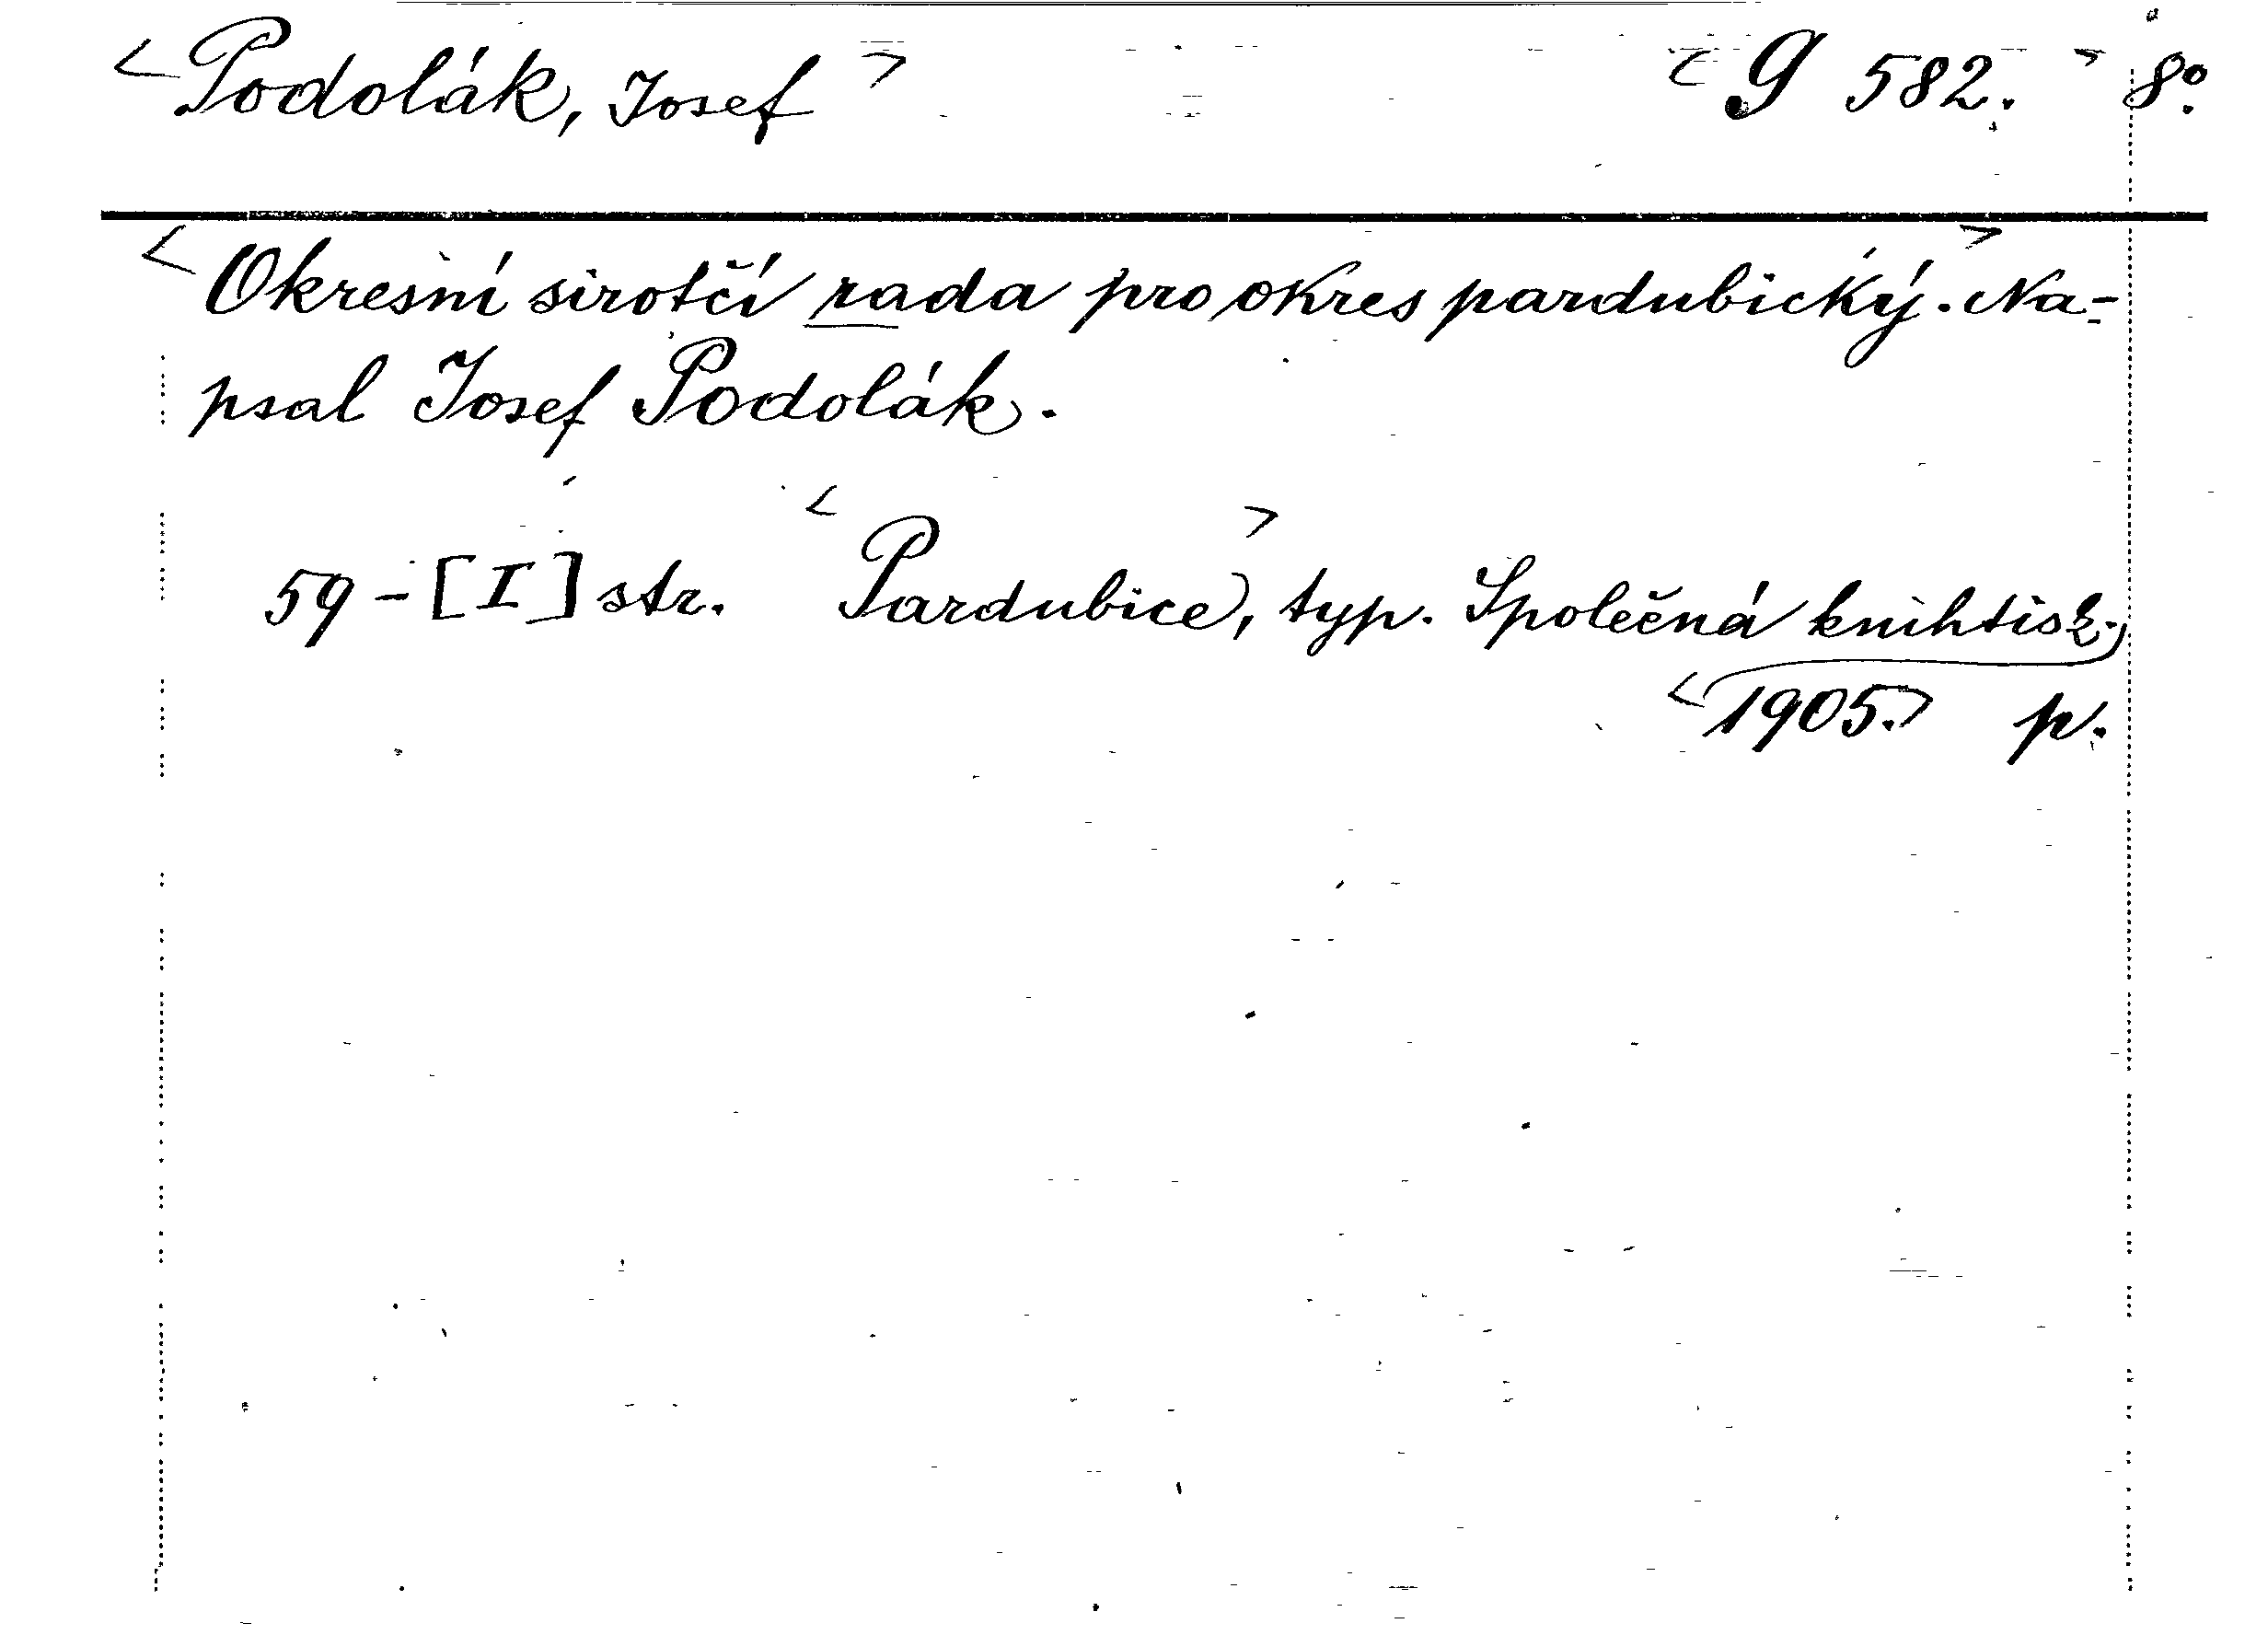 <Podolák, Josef> <G 582.> 8°.
<Okresní sirotčí rada pro okres pardubický.> Na-
psal Josef Podolák.
59-[I] str. <Pardubice>, typ. Společná knihtisk.,
<1905.> p.